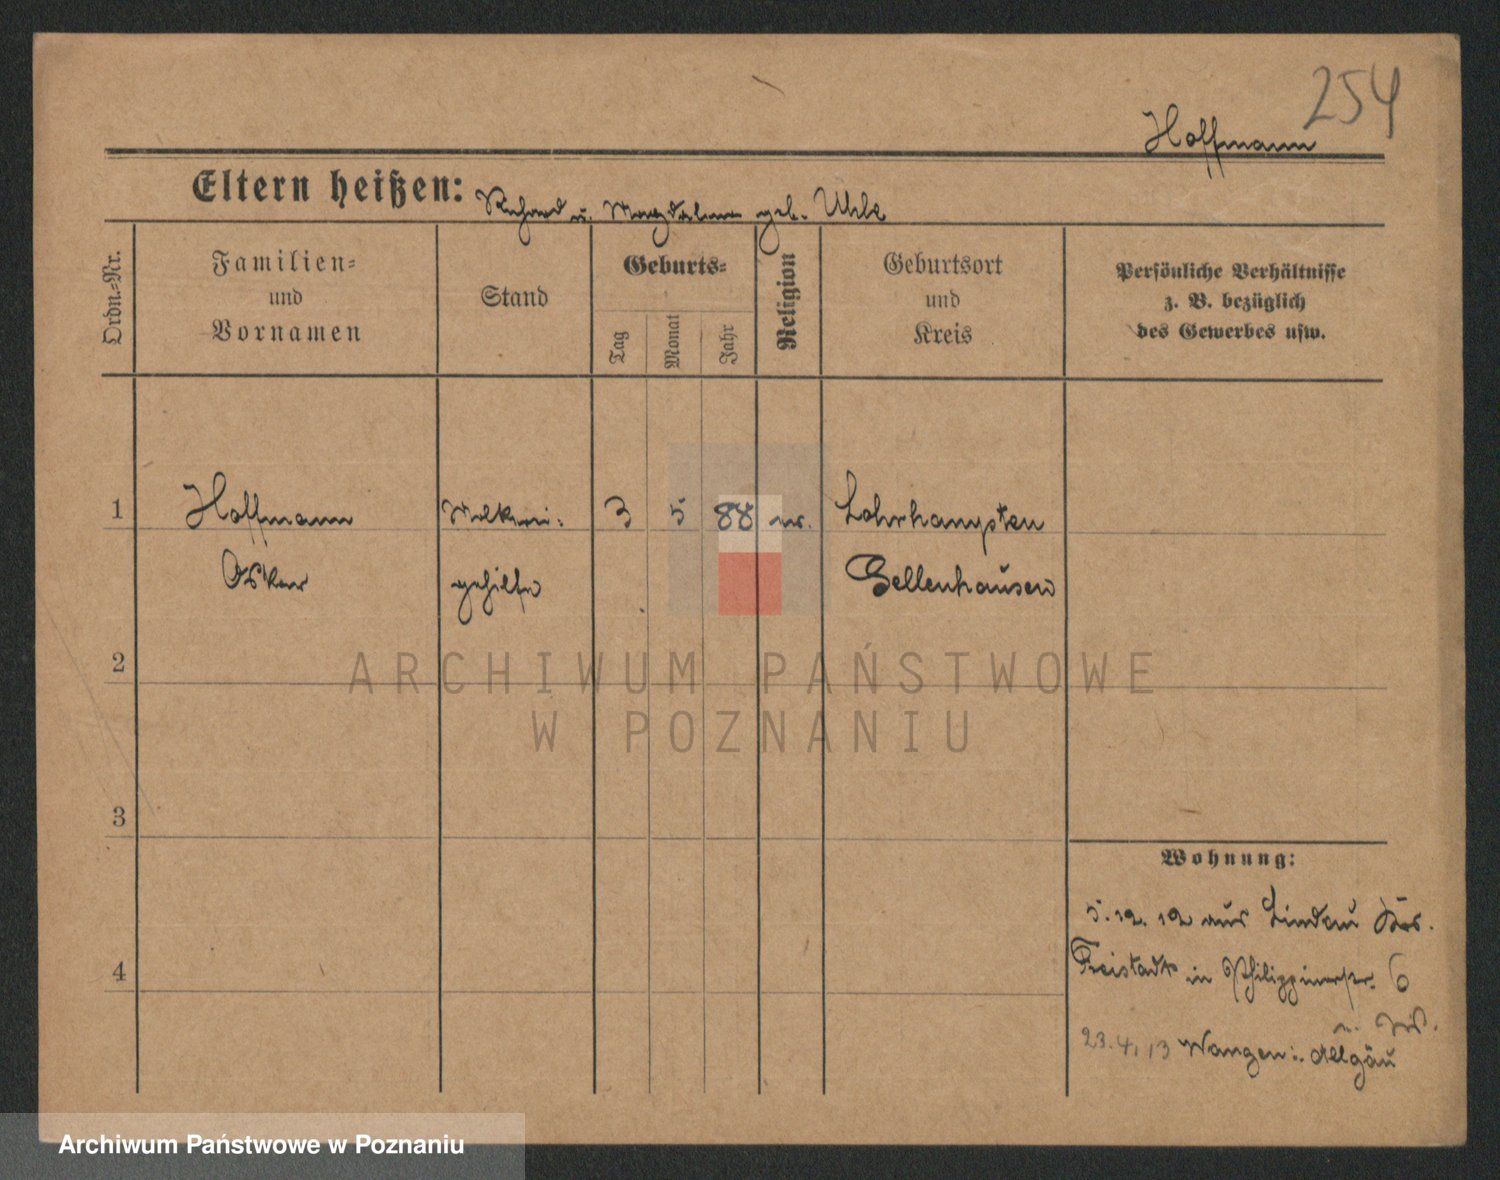 254
Hoffmann
Eltern heißen: Richard u. Magdalena geb. Uhle
Ordn.-Nr.
Familien-
und
Vornamen
Stand
Geburts-
Tag
Monat
Jahr
Religion
Geburtsort
und
Kreis
Persönliche Verhältnisse
z. B. bezüglich
des Gewerbes usw.
1
Hoffmann
Oskar
Molkerei-
gehilfe
3
5
88
Lohrhaupten
Gellenhausen
2
3
4
Wohnung:
5.12.12 aus Lindau Krs.
Freistadt in Philippinerstr. 6
23.4.13 Wangen i. Allgäu
ARCHIWUM PAŃSTWOWE
W POZNANIU
Archiwum Państwowe w Poznaniu